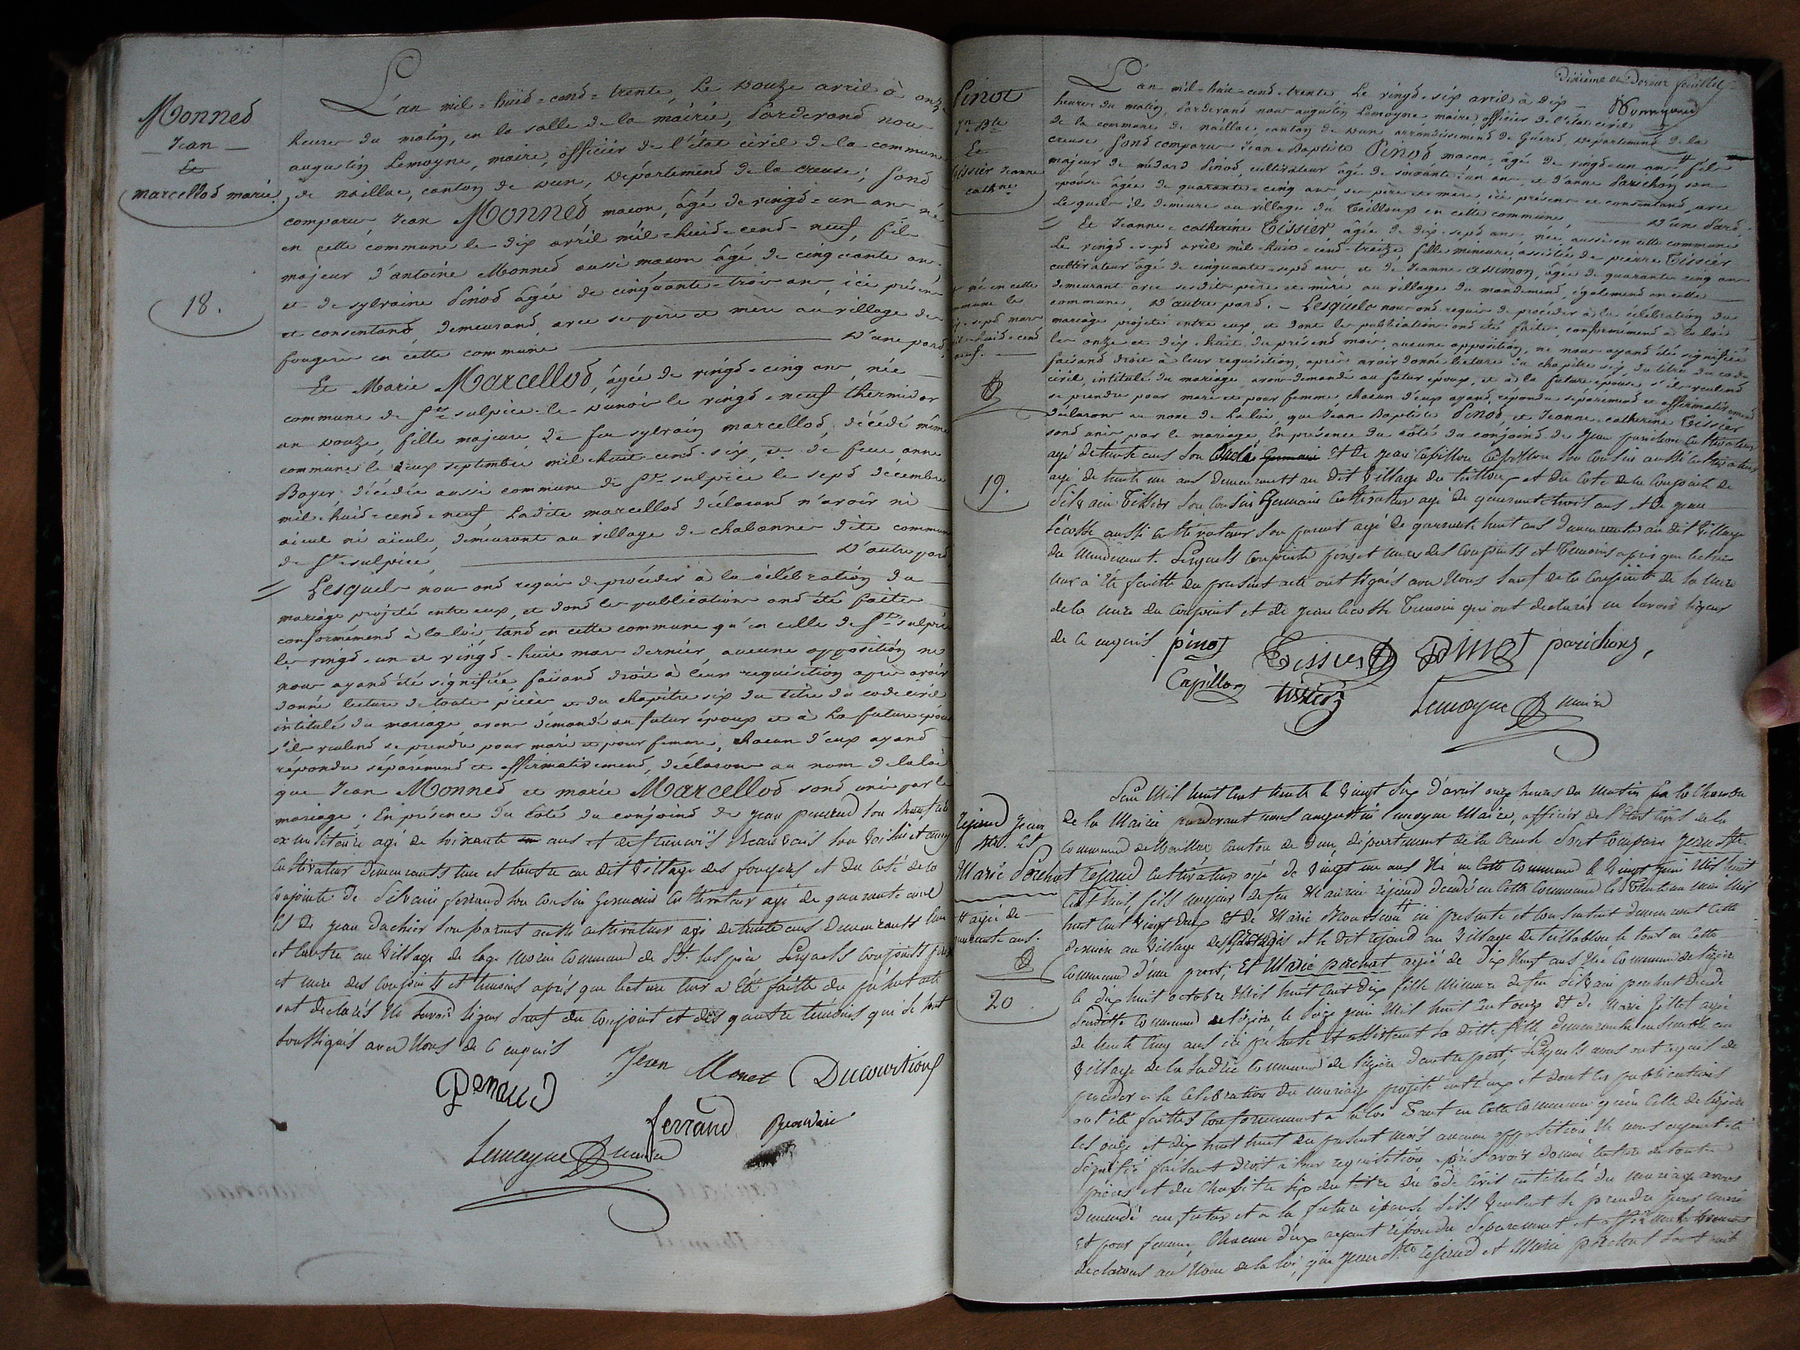 Monned
Jean
Et
marcellod marie
18.
L'an mil-huid-cend-trente, Le douze avril à onze
heures du matin, en la salle de la mairie, Pardevand nous
augustin Lemoyne, maire, officier de l'état civil de la commune
de naillac, canton de dun, département de la creuse; sond
comparus Jean Monned macon, âgé de vingd-un ans né
en cette commune le dix avril mil-huid-cend-neuf, fils
majeur d'antoine Monned aussi macon âgé de cinquante ans
et de sylvaine Pinod âgée de cinquante-trois ans, ici présens
et consentand, demeurand avec ses père et mère au village des
fougeres en cette commune D'une pard,
Et Marie Marcellod, âgée de vingd-cinq ans, née
commune de St sulpice-le-dunois le vingd-neuf thermidor
an douze, fille majeure de feu sylvain marcellod, décédé même
commune le deux septembre mil-huid-cend-six, et de feue anne
Boyer décédée aussi commune de St sulpice le sepd décembre
mil-huid-cend-neuf Ladite marcellod déclarand n'avoir ni
aieul ni aïeule, demeurant au village de chabannes dite commune
de St sulpice, D'autre pard
Lesquels nous ond requis de procéder à la célébration du
mariage projeté entre eux, et dond les publications ond été faites
conformémend à la loi tand en cette commune qu'en celle de St sulpice
les vingd-un et vingd-huid mars dernier, aucune opposition ne
nous ayand été signifiée, faisand droit à leur requisition, après avoir
donné lecture de toutes pièces et du chapitre six du titre du code civil
intitulé du mariage, avons demandé au futur époux et à la future épouse
s'ils veulend se prendre pour mari et pour femme, chacun d'eux ayand
répondu séparémend et affirmativemend, déclarons au nom de la loi
que Jean Monned et marie Marcellod sond unis par le
mariage. En présence du coté du conjoind de jean penaud
ex militaire agé de soixante ans et de francois Beauvais son voisin et ami
Cultivateur demeurants lun et lautre au dit Village des fougeres et du coté de la
conjointe de Silvain ferrand son Cousin Germain Cultivateur agé de quarante
Et de jean dachier son parent aussi cultivateur agé de trente ans Demeurants lun
et lautre au Village de Commune de St. Sulpice Lesquels conjoints
et mere des conjoints et temoins après que lecture leur a été faitte du présent acte
ont déclarés Ne Savoir Signer Sauf du conjoint et des quatre témoins qui se sont
soussignés avec Nous de Ce enquis
Jean Monet Ducourtioux
Penaud
ferrand Beauvais
Lemoyne maire
Dixième et Dernier feuillet
Pinot
Jn Bte
Et
Tissier Jeanne
cathne
né en cette
commune le
sepd mars
mil-huid-cend
neuf.
19.
L'an mil-huid-cend-trente Le vingd-six avril à dix
heures du matin, Pardevand nous augustin Lemoyne, maire, officier de l'état civil
de la commune de naillac, canton de dun, arrondissement de Guéred, département de la
creuse, sond comparus Jean-Baptiste Pinod, macon, âgé de vingd-un ans, fils
majeur de médard Pinod, cultivateur âgé de soixante-un ans, et d'anne Parichon son
épouse âgée de quarante-cinq ans ses père et mère, ici présens et consentand, avec
Lesquels il demeure au village du Toilloux en cette commune, D'une Pard
Et Jeanne-catherine Tissier âgée de dix-sepd ans, née aussi en cette commune
Le vingd-sepd avril mil-huid-cend-treize, fille mineure, assistée de pierre Tissier
cultivateur âgé de cinquante-sepd ans, et de Jeanne assimon, âgée de quarante cinq ans
demeurant avec sesdits père et mère au village du mondemend, également en cette
commune, D'autre pard. Lesquels nous ond requis de procéder à la célébration du
mariage projeté entre eux, et dont les publications ond été faites, conformémend à la loi
les onze et dix-huid du présend mois, aucune opposition ne nous ayand été signifiée
faisand droit à leur requisition, après avoir donné lecture du chapitre six, du titre du code
civil, intitulé du mariage, avons demandé au futur époux, et à la future épouse, s'ils veulend
se prendre pour mari et pour femme chacun d'eux ayand répondu séparémend et affirmativemend
déclarons au nom de la loi que Jean Baptiste Pinod et Jeanne-catherine Tissier
sond unis par le mariage, En présence du côté du conjoind de Jean parichon Cultivateur
agé de trente ans son Oncle Germain et de jean Capillon son Cousin aussi Cultivateur
agé de trente un ans demeurants au dit Village du toilloux et du coté de la Conjointe de
Silvain Tissier Son Cousin Germain Cultivateur agé de quarante trois ans et de jean
Lecosse aussi Cultivateur son parent agé de quarante huit ans demeurants au dit Village
du Mondement. Lesquels conjoints peres et meres des Conjoints et Temoins apres que lecture
leur a été faitte du present acte ont signés avec Nous Sauf de la Conjointe de la mere
de la mere du Conjoint et de jean lecosse Temoin qui ont declarés ne savoir signer
de ce enquis. pinot Tissier Pinot parichon,
Capillon tissier
Lemoyne maire
Tejaud Jean
Bte. Et
Marie Pochot
agée de
quarante ans.
20
Lan Mil huit cent trente le Vingt Six d'avril onze heures du Matin en la Chambre
de la Mairie pardevant nous augustin Lemoyne Maire, officier de l'état civil de la
Commune de Naillac Canton de Dun, département de la Creuse Sont comparu Jean Bte
tejaud Cultivateur agé de Vingt un ans Né en Cette Commune le Vingt juin Mil huit
cent huit, fils majeur de feu tejaud decedé en Cette Commune le trente un mai Mil
huit cent vingt deux Et de Marie ici presente et consentant demeurant Cette
derniere au Village des et le dit tejaud au Village de le tout en Cette
Commune d'une part; Et Marie pochot agée de Dix Neuf ans Née Commune de
le dix huit octobre Mil huit Cent Dix fille Mineure de feu Silvain pochot decedé
Susditte Commune le Seize juin Mil huit cent onze et de Marie agée
de trente Cinq ans ici presente Et assistant sa ditte fille demeurante ensemble au
Village de la Susdite Commune de D'autre part, Lesquels nous ont requis de
proceder a la Celebration du mariage projeté entr'eux et dont les publications
ont été faittes Conformement a la loi Tant en Cette Commune qu'en Celle de
les onze et dix huit du present mois aucune opposition Ne nous ayant été
Signifiée faisant Droit a leur requisition après avoir donné lecture de toutes
pieces et du Chapitre Six du titre du Code Civil intitulé du mariage avons
demandé au futur et a la future épouse s'ils veulent se prendre pour mari
Et pour femme, Chacun d'eux ayant répondu separement et affirmativement
declarons au Nom de la loi, que Jean Bte Tejaud et Marie pochot sont unis